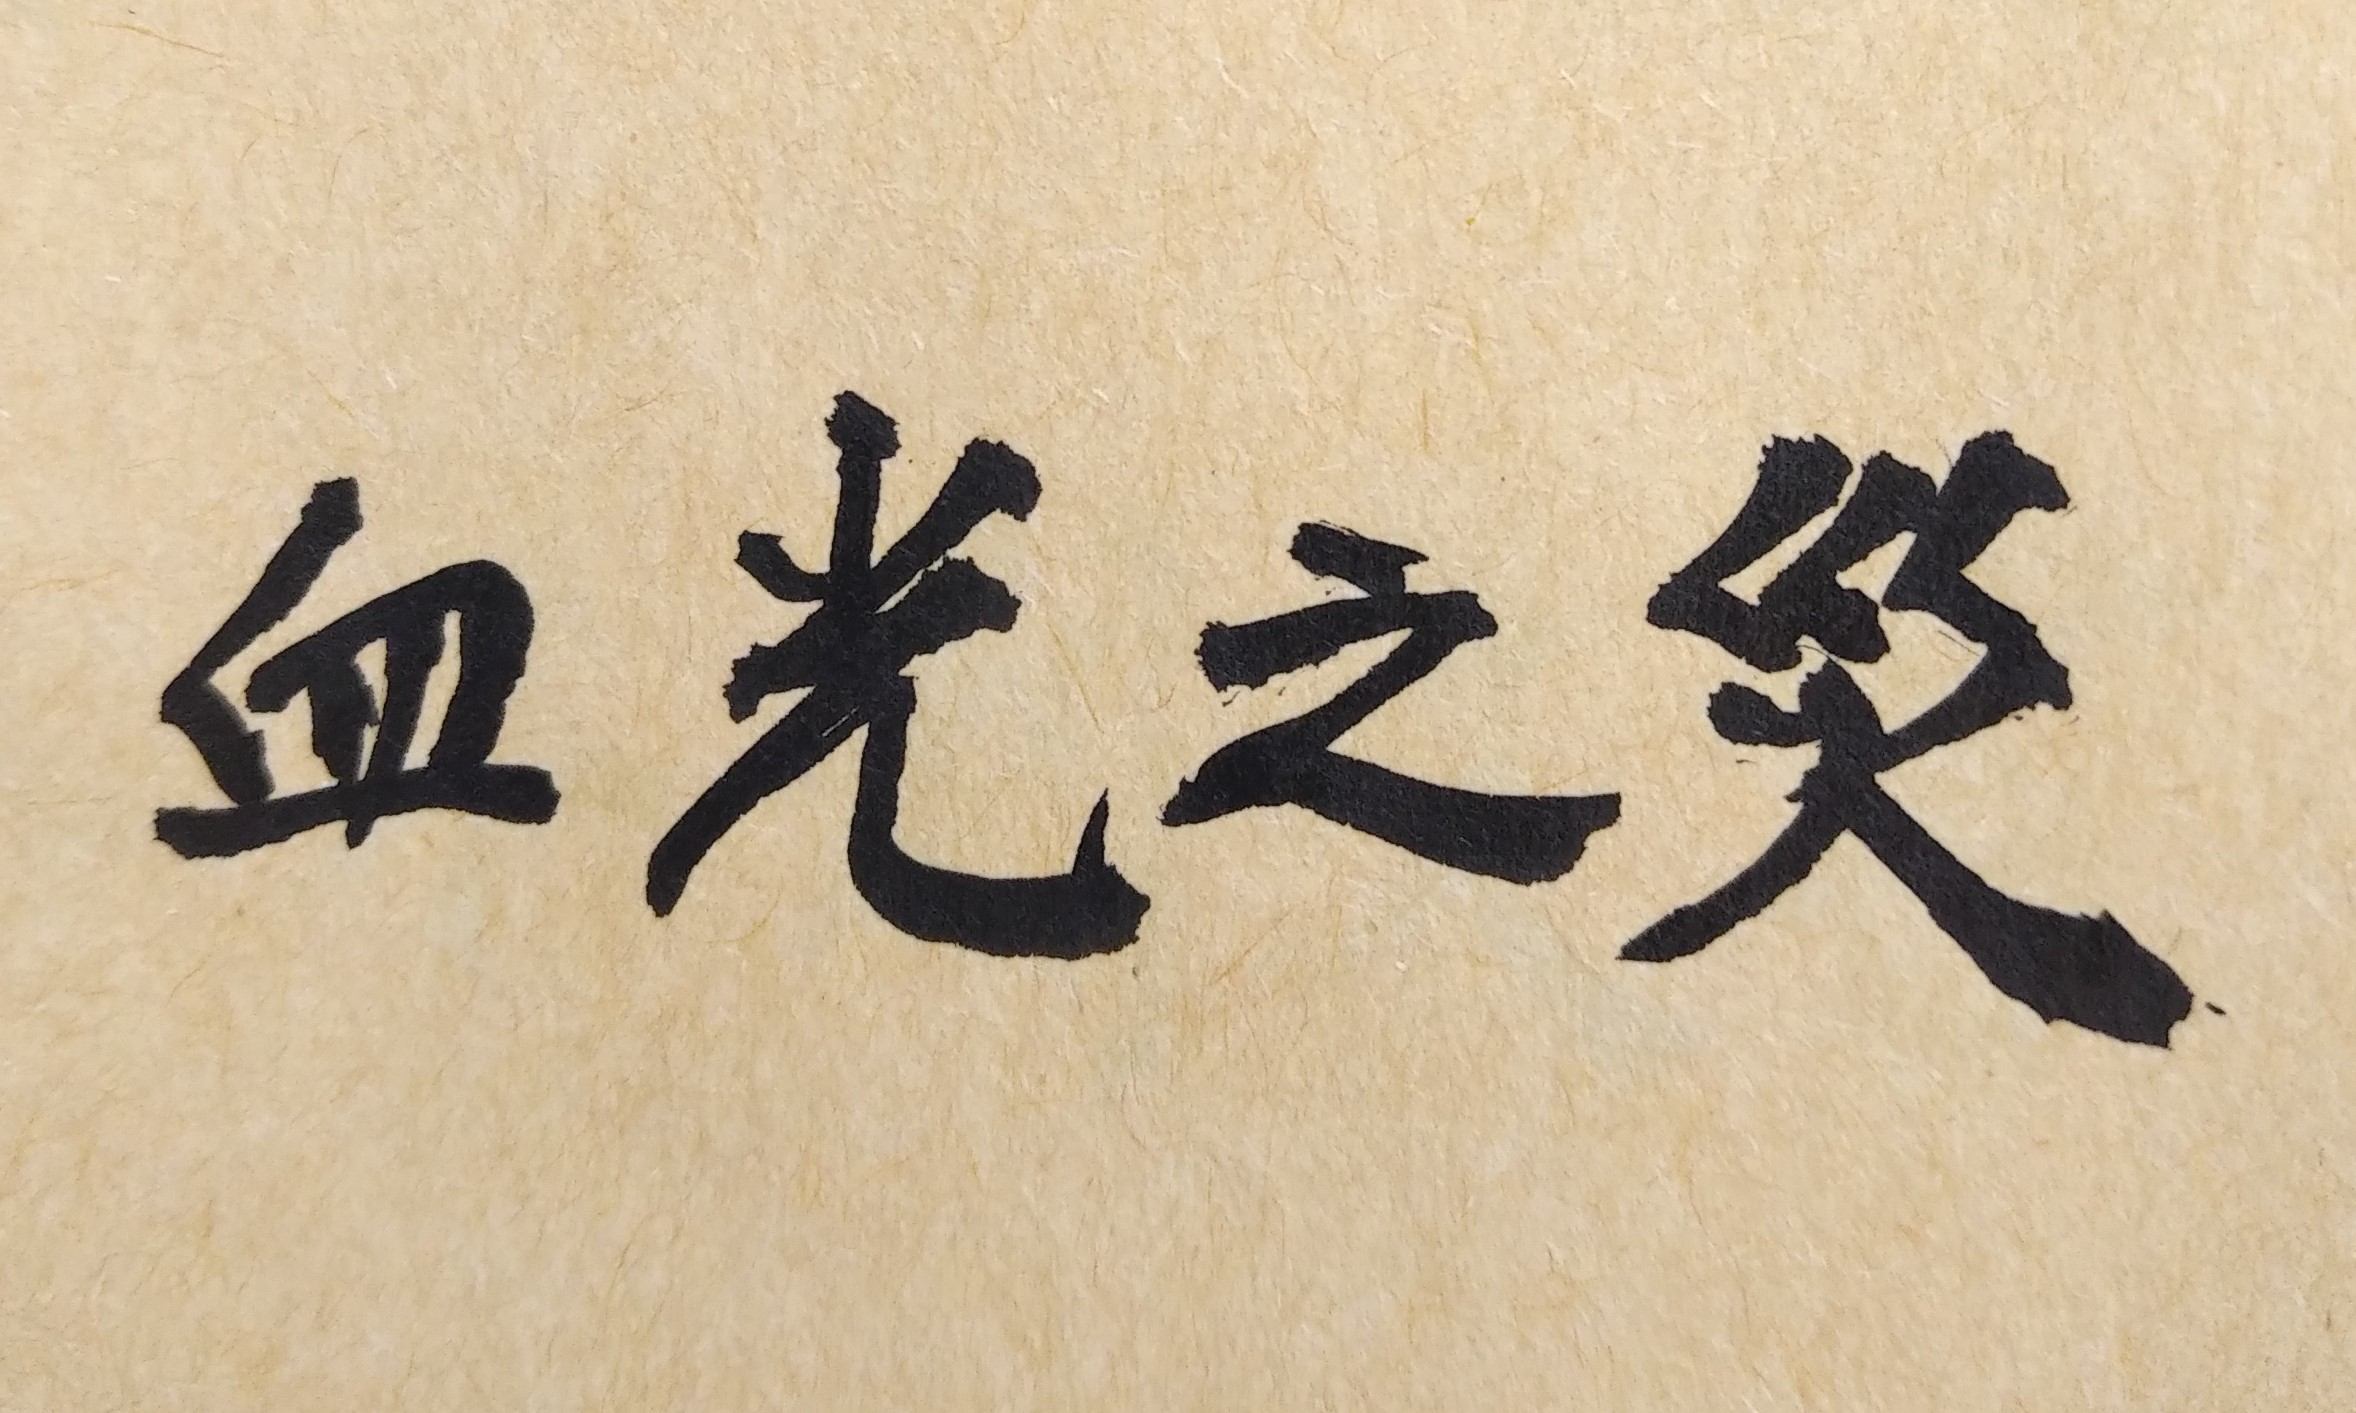 血光之災